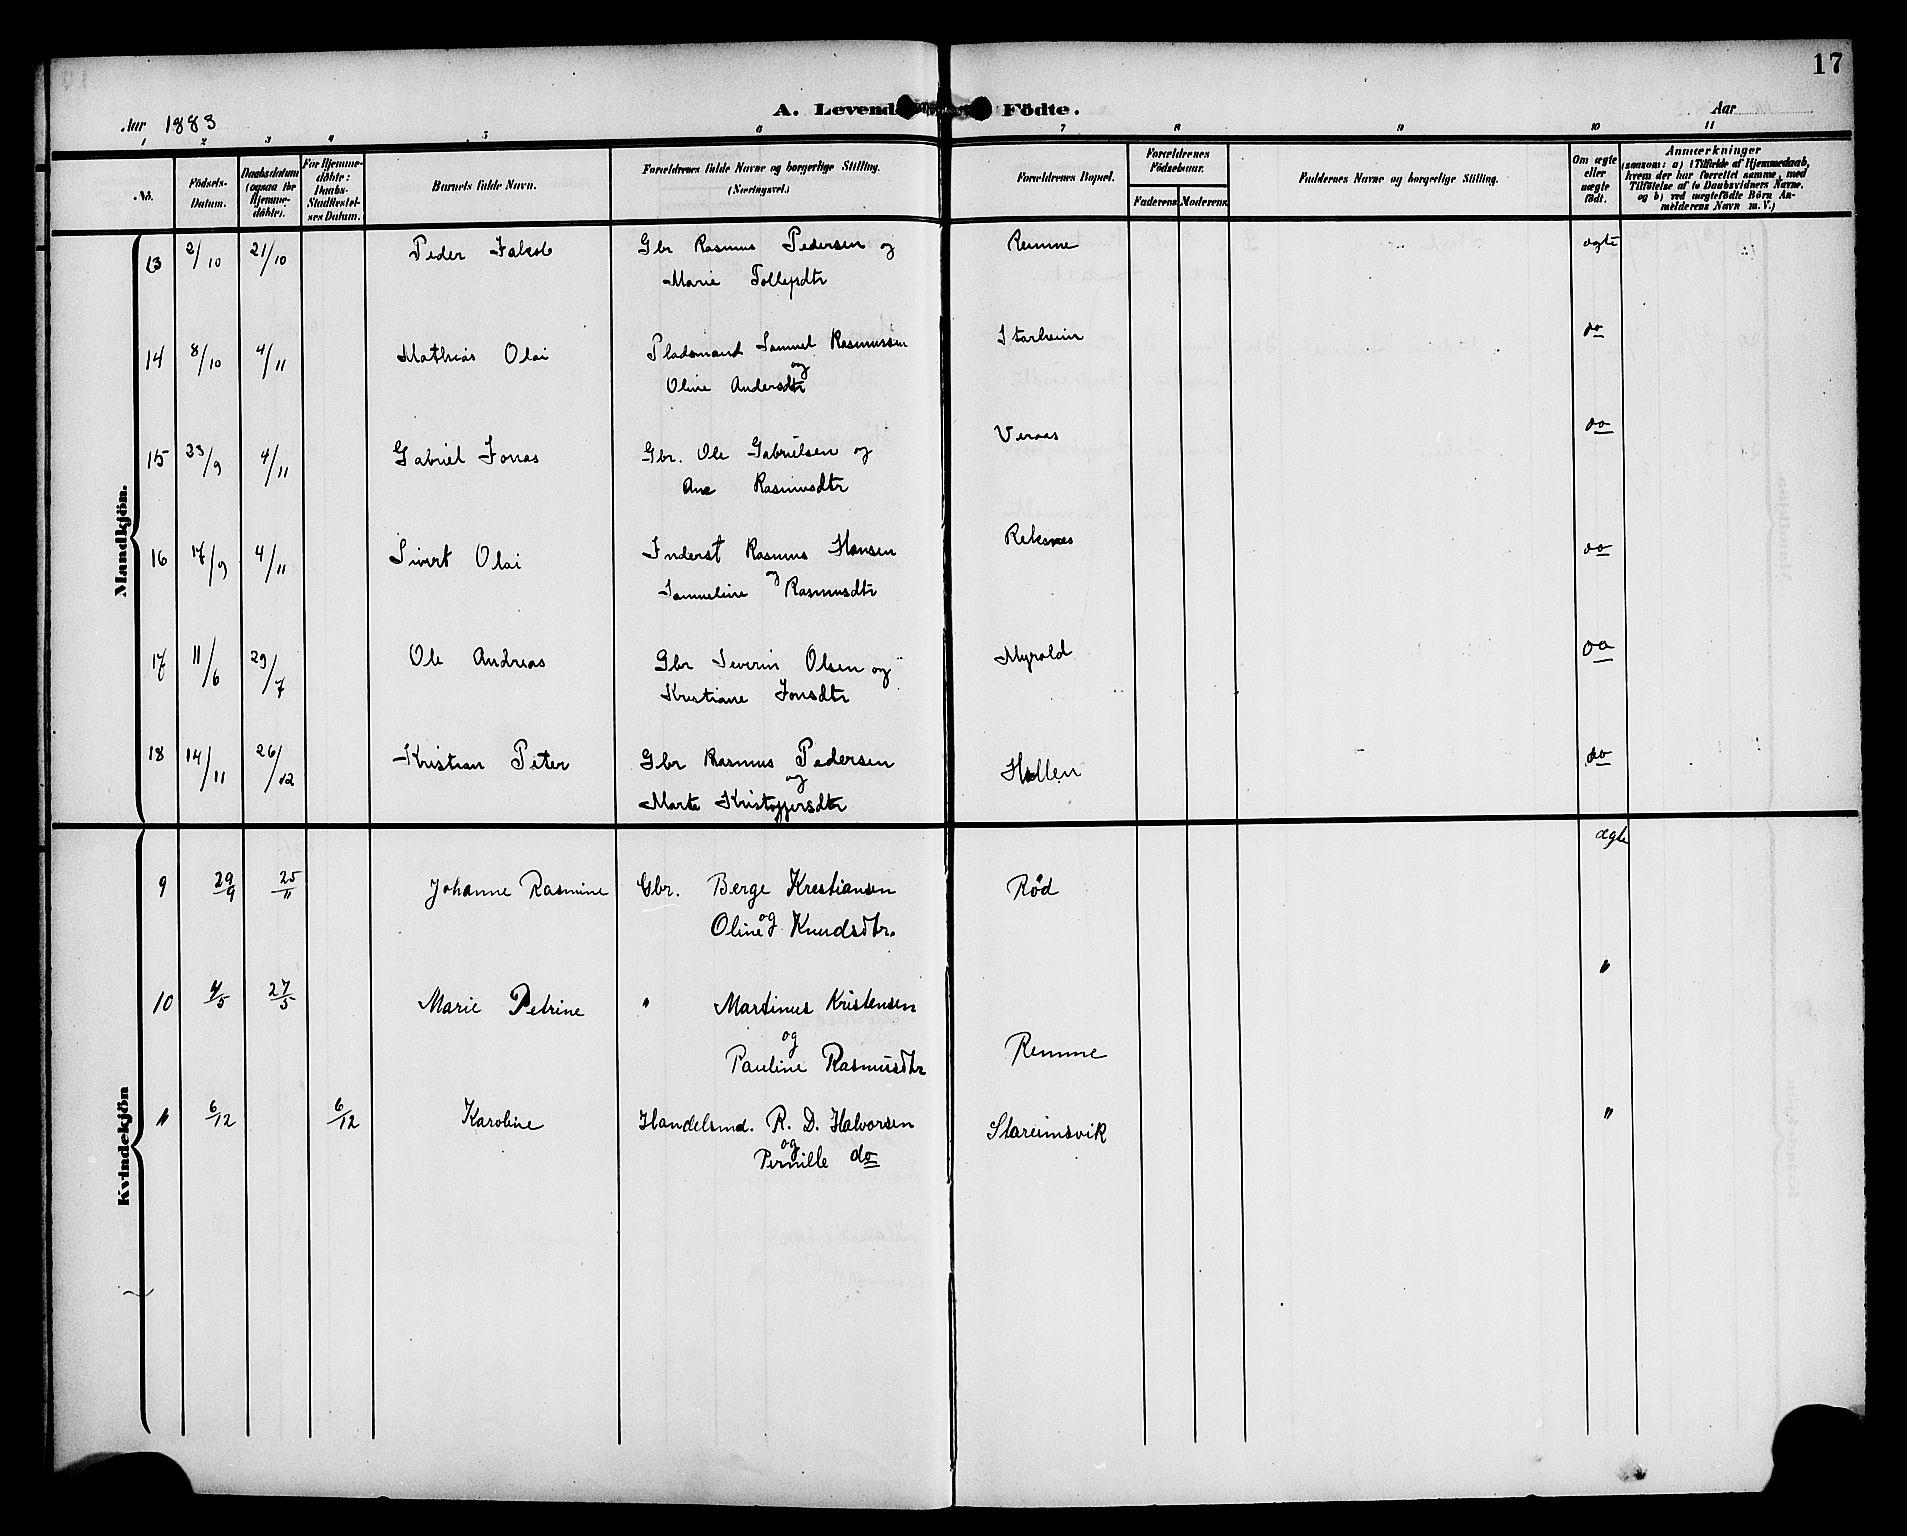 17
A. Levende Födte.
Aar 1883
Aar
1 2 3 4 5 6 7 8 9 10 11
No.
Födsels-Datum.
Daabsdatum (ogsaa for Hjemmedöbte).
For Hjemmedöbte: Daabs-Stadfestelses Datum.
Barnets fulde Navn.
Forældrenes fulde Navne og borgerlige Stilling. (Næringsvei.)
Forældrenes Bopæl.
Forældrenes Födselsaar.
Faderens
Moderens
Faddernes Navne og borgerlige Stilling.
Om ægte eller uægte födt.
Anmærkninger
(saasom: a) i Tilfælde af Hjemmedaab, hvem der har forrettet samme, med Tilföielse af to Daabsvidners Navne, og b) ved uægtefödte Börn Anmelderens Navn m. V.)
Mandkjön.
13 2/10 21/10 Peder Jakob Gbr Rasmus Pedersen og Remme ægte
Marie Tollefsdtr
14 8/10 4/11 Mathias Olai Pladsmand Samuel Rasmussen Starheim do
og
Oline Andersdtr
15 23/9 4/11 Gabriel Jonas Gbr. Ole Gabrielsen og Veraas do
Ane Rasmusdtr
16 17/9 4/11 Sivert Olai Inderst Rasmus Hansen Reksnes do
og
Samueline Rasmusdtr
17 11/6 29/7 Ole Andreas Gbr Severin Olsen og Myrold do
Kristiane Jonsdtr
18 14/11 26/12 Kristian Peter Gbr Rasmus Pedersen Hallen do
og
Marte Kristoffersdtr
Kvindekjön
9 29/9 25/11 Johanne Rasmine Gbr. Berge Krestiansen Rød ægte
og
Oline Knudsdtr.
10 4/5 27/5 Marie Petrine " Martinus Kristensen "
og
Pauline Rasmusdtr Remme
" 6/12 6/12 Karoline Handelsmd. R. D. Halvorsen Stareimsvik "
og
Pernille do